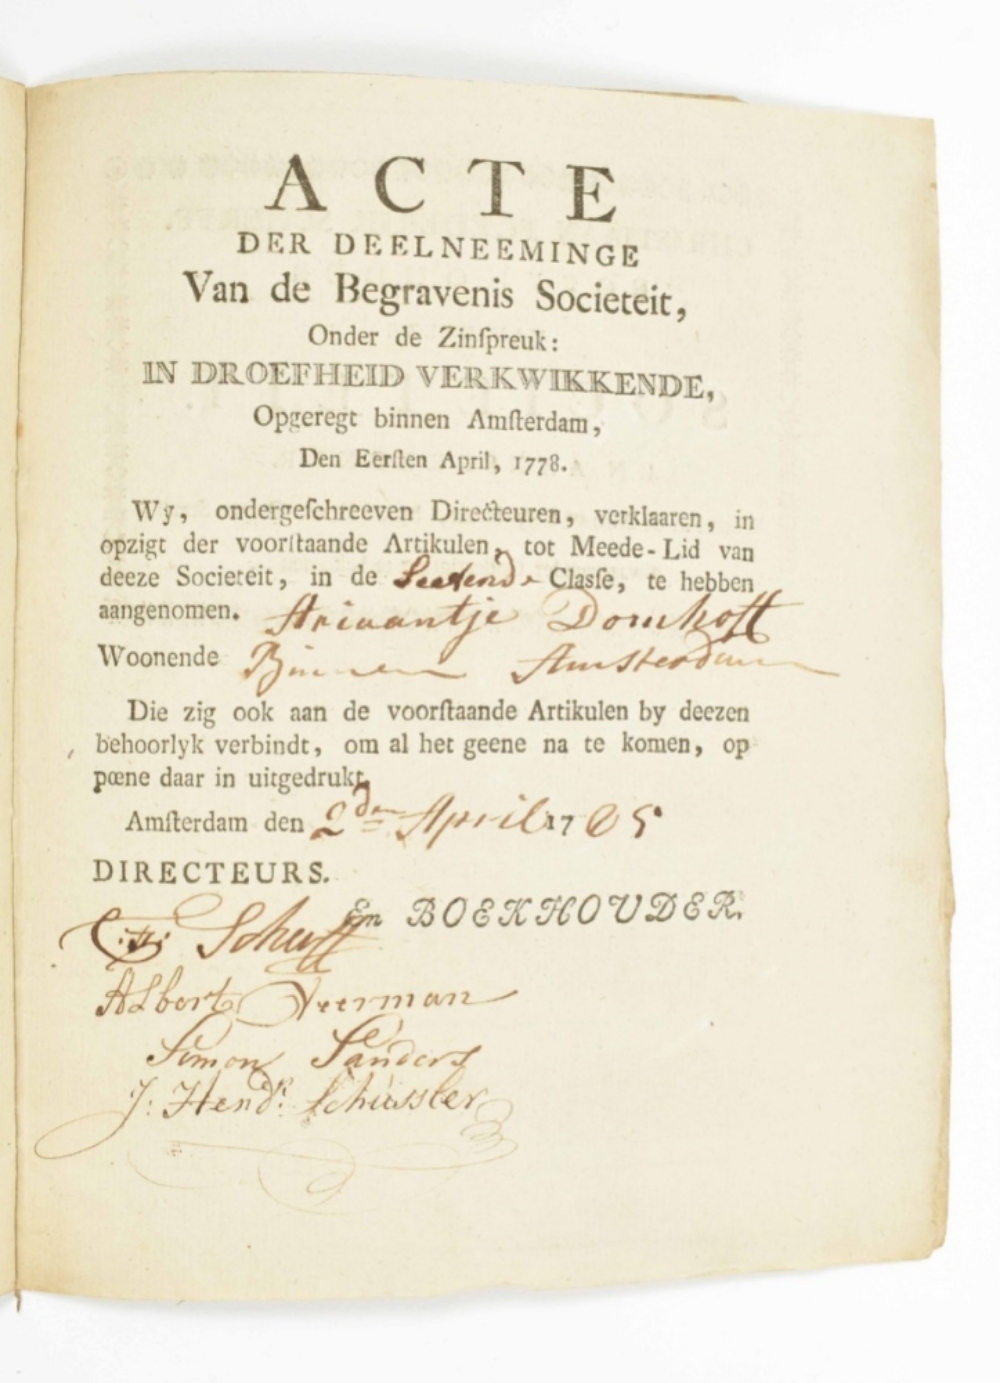 ACTE
DER DEELNEEMINGE
Van de Begravenis Societeit,
Onder de Zinſpreuk:
IN DROEFHEID VERKWIKKENDE,
Opgeregt binnen Amſterdam,
Den Eerſten April, 1778.
Wy, ondergeſchreeven Directeuren, verklaaren, in
opzigt der voorſtaande Artikulen, tot Meede-Lid van
deeze Societeit, in de Claſſe, te hebben
aangenomen. Ariaantje Domhoff
Woonende Binnen Amsterdam
Die zig ook aan de voorſtaande Artikulen by deezen
behoorlyk verbindt, om al het geene na te komen, op
pœne daar in uitgedrukt.
Amſterdam den 2den April 1785
DIRECTEURS.
En BOEKHOUDER.
Albert Veerman
Simon Sanders
J: Hendk: Schüssler